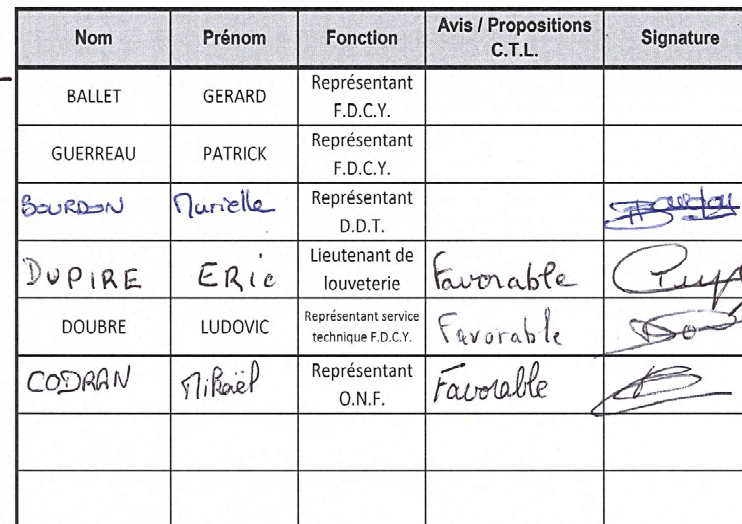 Nom Prénom Fonction Avis / Propositions C.T.L. Signature
BALLET GERARD Représentant F.D.C.Y.
GUERREAU PATRICK Représentant F.D.C.Y.
BOURDON Murielle Représentant D.D.T.
DUPIRE ERic Lieutenant de louveterie Favorable
DOUBRE LUDOVIC Représentant service technique F.D.C.Y. Favorable
CODRAN Mikaël Représentant O.N.F. Favorable